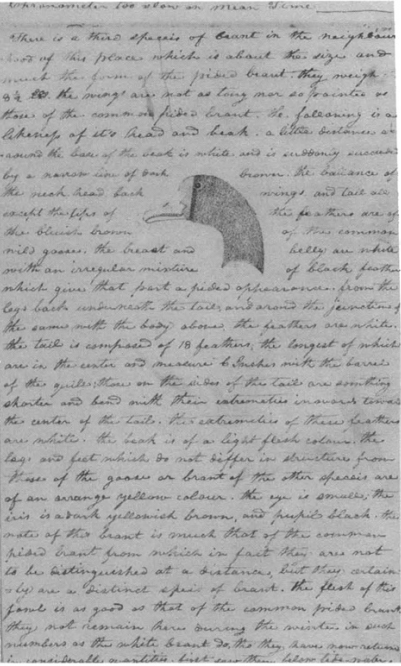 Chronometer too slow on Mean Time.
There is a third species of brant in the neighbour
hood of this place which is about the size and
much the form of the pided brant. they weigh
8½ lbs. the wings are not as long nor so pointed as
those of the common pided brant. the following is a
likeness of it's head and beak. a little distance
around the base of the beak is white and is suddonly
by a narrow line of dark brown. the ballance of
the neck head back wings and tail all
except the tips of the feathers are of
the bluish brown of the common
wild goose. the breast and belly are white
with an irregular mixture of black feathers
which give that part a pided appearance. from the
legs back underneath the tail, and around the junction of
the same with the body above, the feathers are white.
the tail is composed of 18 feathers; the longest of which
are in the center and measure 6 Inches with the barrel
of the quill; those on the sides of the tail are something
shorter and bend with their extremities inwards towards
the center of the tail. the extremities of these feathers
are white. the beak is of a light flesh colour. the
legs and feet which do not differ in structure from
those of the goose or brant of the other species are
of an orrange yellow colour. the eye is small; the
iris is a dark yellowish brown, and pupil black. the
note of this brant is much that of the common
pided brant from which in fact they are not
to be distinguished at a distance, but they certain-
ly are a distinct species of brant. the flesh of this
fowl is as good as that of the common pided brant.
they do not remain here during the winter in such
numbers as the white brant do, tho' they have now returned
in considerable quantities. first saw this